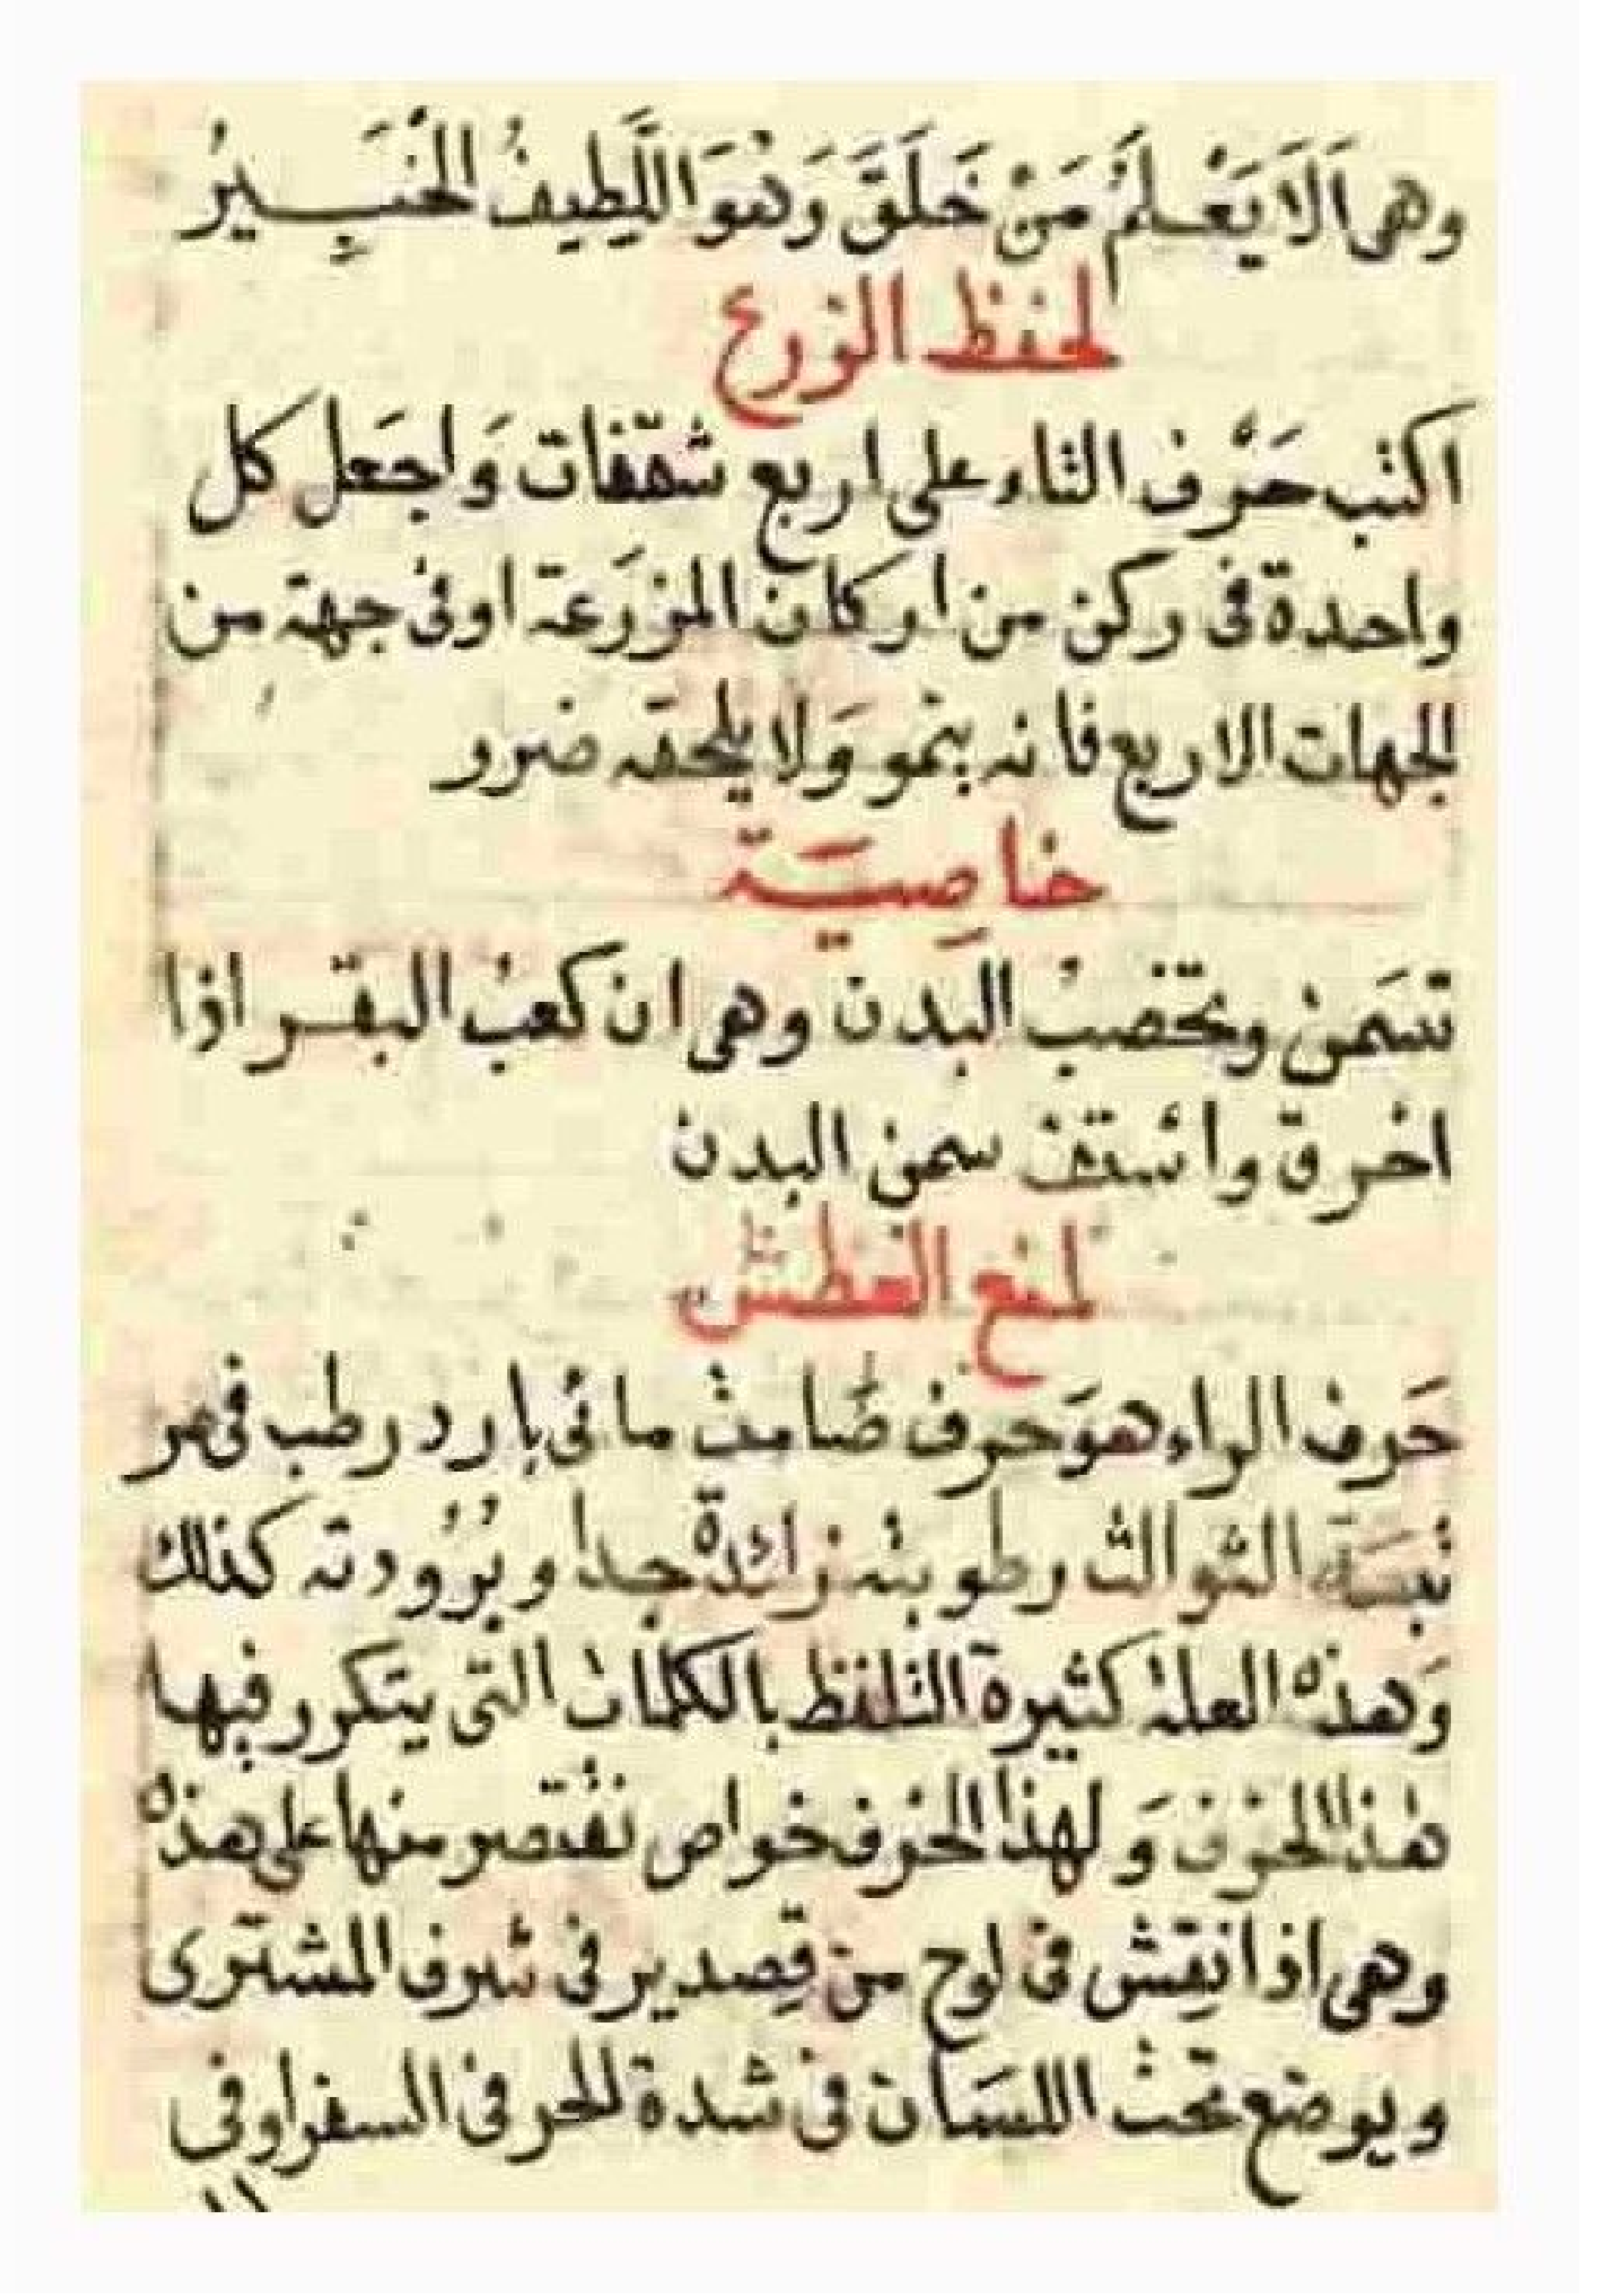 وهى اَلَا يَعْلَمُ مَنْ خَلَقَ وَهُوَ اللَّطِيفُ الْخَبِيرُ
لحفظ الزرع
اكتب حَرْف الثاء على اربع شقفات وَاجعَل كل
واحدة فى ركن من اركان المزرَعة اوفى جهة من
الجهات الاربع فانه ينمو وَلا يلحقه ضرر
خاصِيَة
تسَمن وتخصبُ البَدن وهى ان كعبُ البقر اذا
احرق وأستف سمن البدن
لمنع العطش
حَرف الراء هوَ حرف صَامت مائى بارد رطب فى مر
تبَة الثوالث رطوبته زائدة جدا وبرُودته كذلك
وَهذه العلة كثيرة التلفظ بالكلمات التى يتكرر فيها
هذا الحرف وَلهذا الحرف خواص نقتصر منها على هذه
وهى اذا نقِش فى لوح من قصِدير فى شرف المشترى
ويوضع تحت اللسَان فى شدة الحر فى السفر اوفى